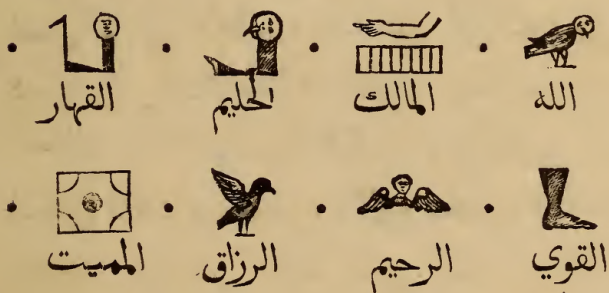 الله المالك الحليم القهار
القوي الرحيم الرزاق المميت